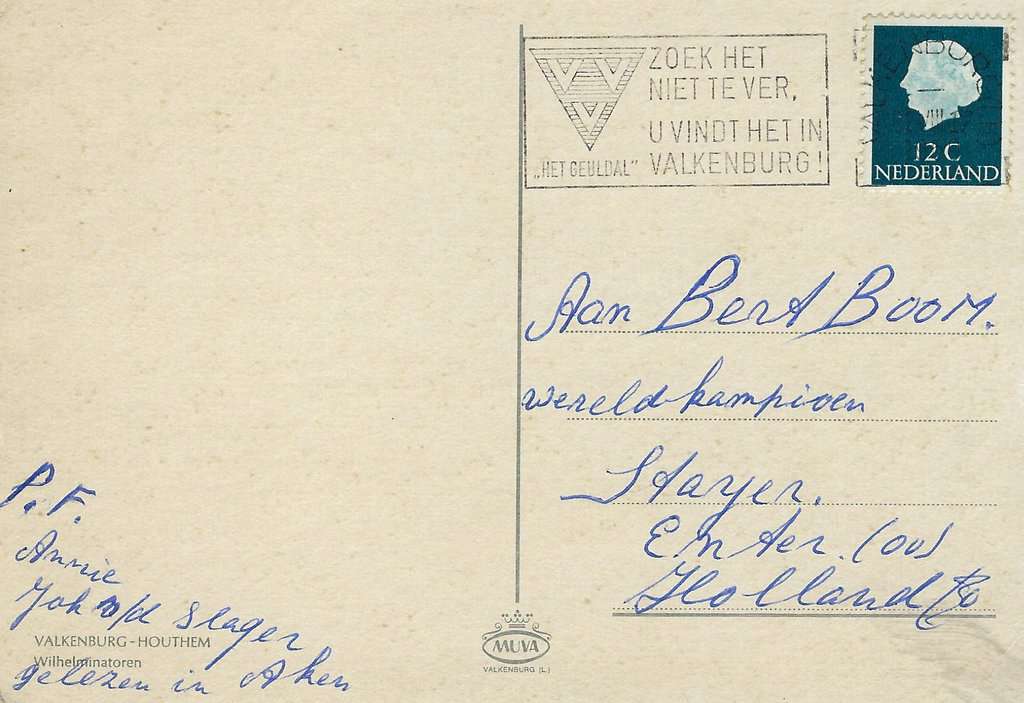 ZOEK HET
NIET TE VER,
U VINDT HET IN
„HET GEULDAL" VALKENBURG!
VVV
12 C
NEDERLAND
Aan Bert Boom.
wereldkampioen
Stayer.
Enter. (OV)
Holland
P.F.
Annie
Joh v/d Slager
VALKENBURG-HOUTHEM
Wilhelminatoren
gelezen in Aken
MUVA
VALKENBURG (L.)